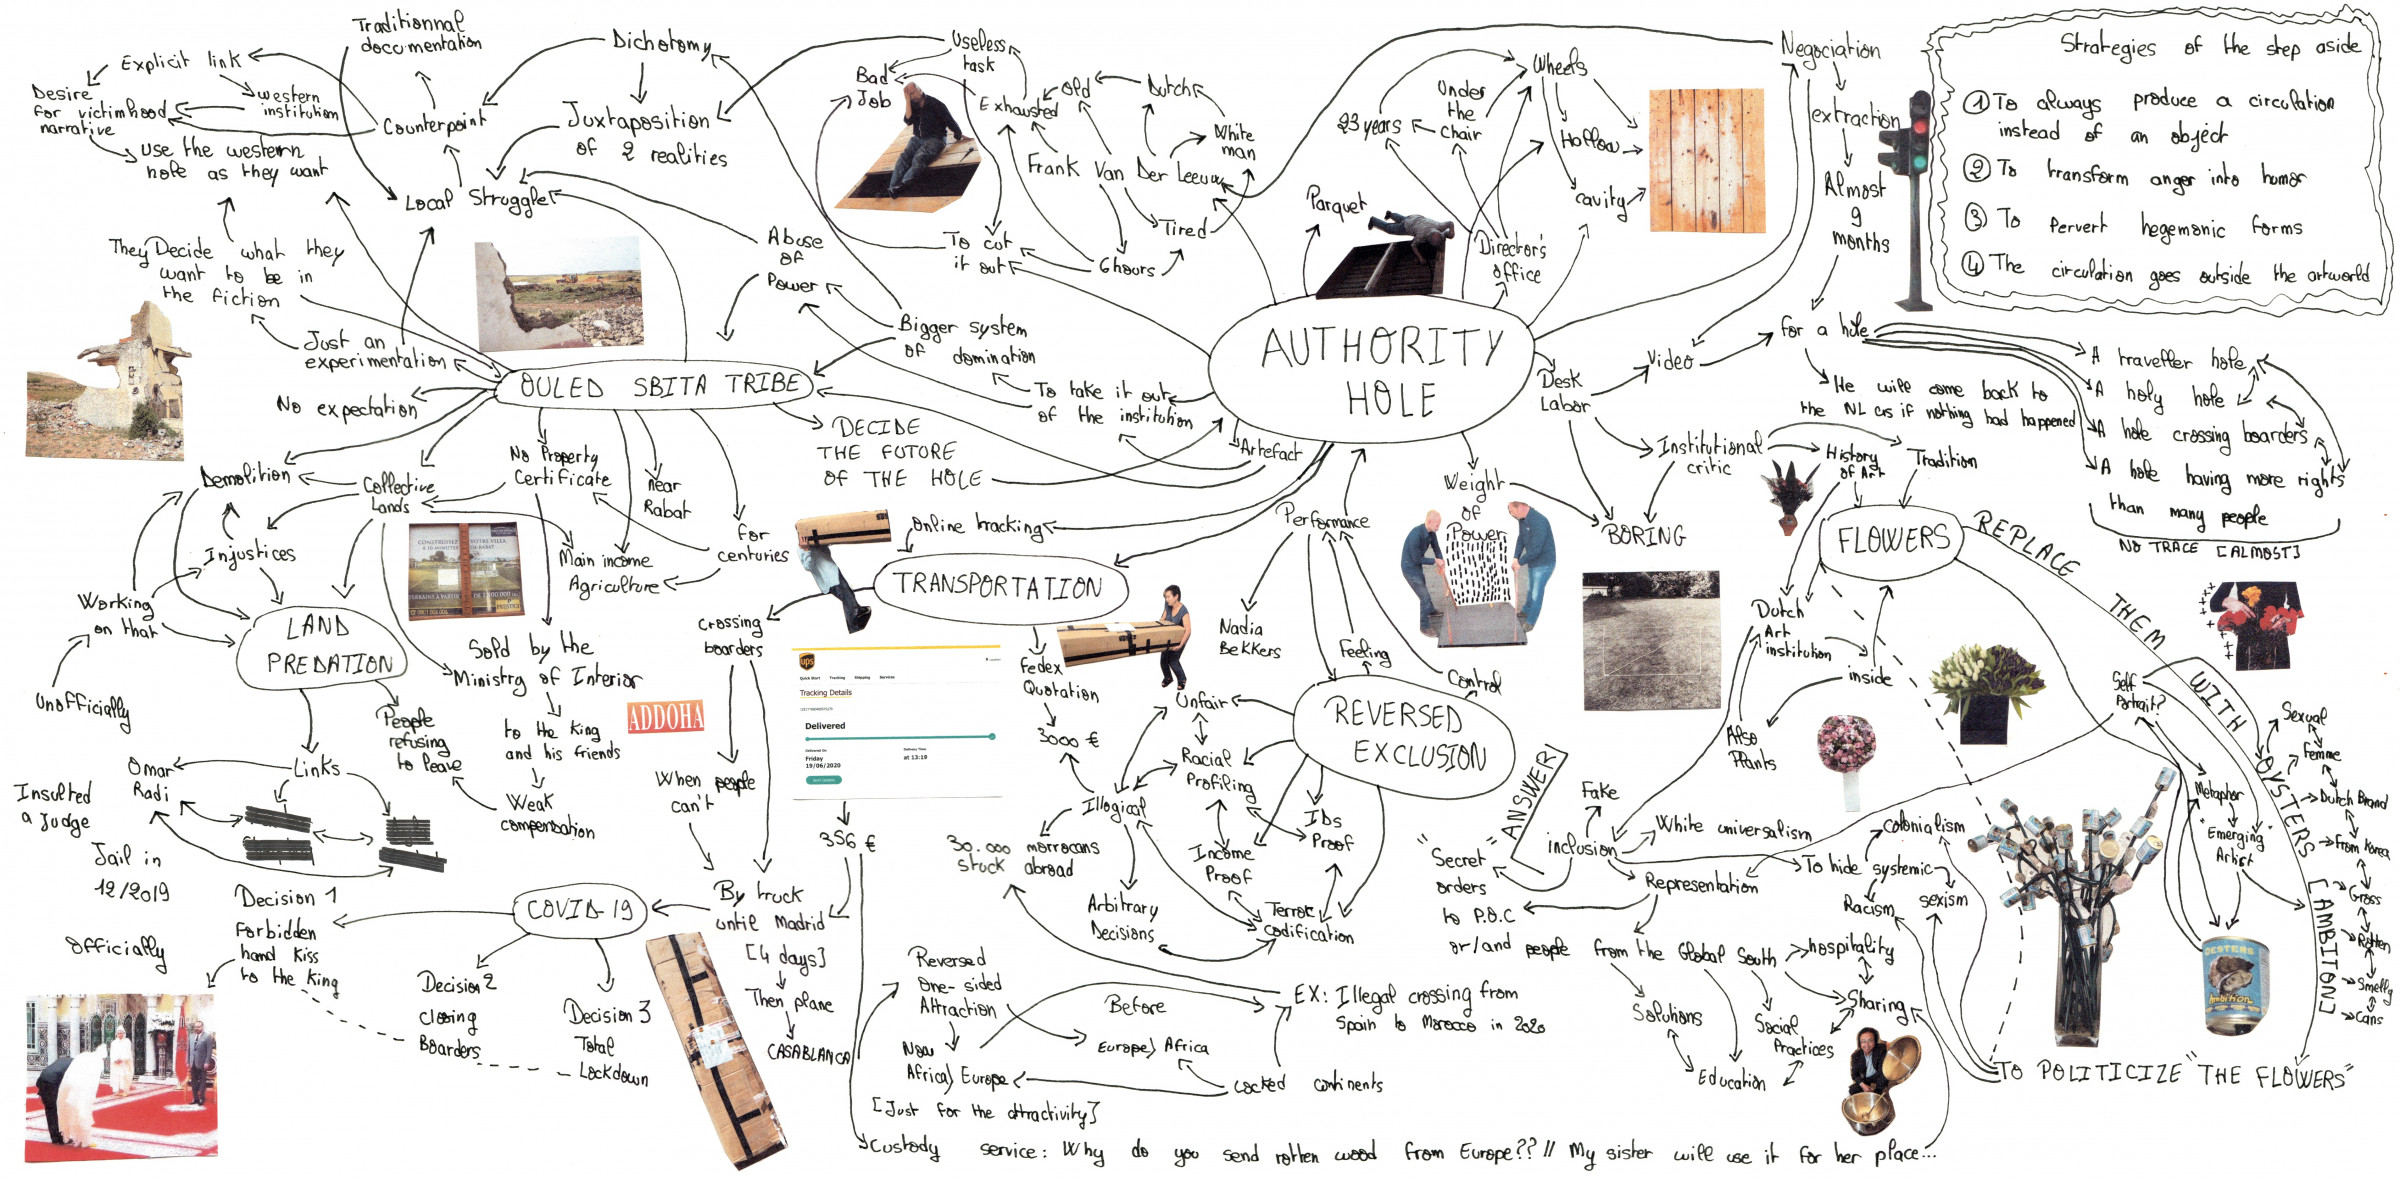 Traditionnal
documentation
Explicit link
Desire
for victimhood
narrative
Western
institution
Use the western
hole as they want
Counterpoint
Dichotomy
Juxtaposition
of 2 realities
Local Struggle
They Decide what they
want to be in
the fiction
Just an
experimentation
No expectation
OULED SBITA TRIBE
Abuse
of
Power
Bigger system
of domination
To take it out
of the institution
DECIDE
THE FUTURE
OF THE HOLE
Useless
task
Bad
Job
Exhausted
Old
Dutch
White
man
Frank Van Der Leeuw
Tired
6 hours
To cut
it out
Parquet
23 years
Under
the
chair
Wheels
Hollow
cavity
Director's
office
AUTHORITY
HOLE
Artefact
Negociation
extraction
Almost
9
months
for a hole
Video
Desk
Labor
Institutional
critic
BORING
Weight
of
Power
He will come back to
the NL as if nothing had happened
Strategies of the step aside
1 To always produce a circulation
instead of an object
2 To transform anger into humor
3 To pervert hegemonic forms
4 The circulation goes outside the artworld
A traveller hole
A holy hole
A hole crossing boarders
A hole having more rights
than many people
NO TRACE [ALMOST]
History
of Art
Tradition
FLOWERS
REPLACE THEM WITH OYSTERS [AMBITION]
Dutch
Art
institution
inside
Also
Plants
Self
Portrait?
Metaphor
"Emerging
Artist"
Sexual
Femme
Dutch Brand
From Korea
Gross
Rotten
Smelly
Cans
OESTERS
Ambition
TO POLITICIZE "THE FLOWERS"
Demolition
Collective
Lands
No Property
Certificate
Near
Rabat
For
centuries
Main income
Agriculture
Injustices
Working
on that
Unofficially
LAND
PREDATION
CONSTRUISEZ VOTRE VILLA
Sold by the
Ministry of Interior
to the King
and his friends
Weak
compensation
People
refusing
to leave
ADDOHA
Links
Omar
Radi
Insulted
a Judge
Jail in
12/2019
Officially
Decision 1
Forbidden
hand kiss
to the King
COVID-19
Decision 2
Closing
Boarders
Decision 3
Total
Lockdown
Online tracking
TRANSPORTATION
Crossing
boarders
When people
can't
By truck
until Madrid
[4 days]
Then plane
CASABLANCA
ups
Quick Start Tracking Shipping Services
Tracking Details
Delivered
Delivered On
Friday
19/06/2020
Delivery Time
at 13:19
356 €
Fedex
Quotation
3000 €
Performance
Nadia
Bekkers
Feeling
Control
REVERSED
EXCLUSION
Unfair
Racial
Profiling
Illogical
Income
Proof
IDs
Proof
Terror
codification
Arbitrary
Decisions
30.000 morrocans
stuck abroad
EX: Illegal crossing from
Spain to Morocco in 2020
Reversed
One-sided
Attraction
Before
Europe> Africa
Now
Africa> Europe
[Just for the attractivity]
Locked continents
Custody service: Why do you send rotten wood from Europe?? // My sister will use it for her place...
"ANSWER!"
Fake
inclusion
White universalism
Representation
To hide systemic
Colonialism
Racism
sexism
Secret
orders
to P.O.C
or/and people from the Global South
hospitality
Sharing
Solutions
Social
Practices
Education